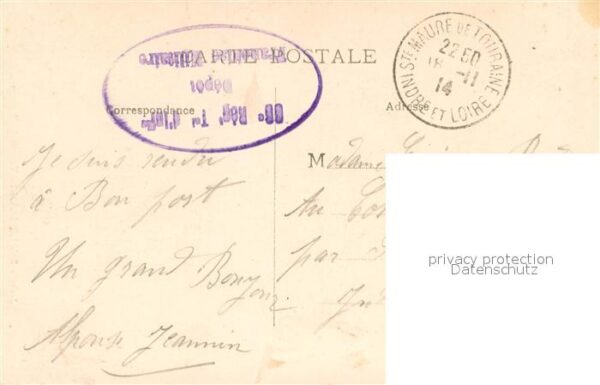 CARTE POSTALE
Correspondance
Adresse
Dépôt
66e Régt Tal d'Infie
STE MAURE DE TOURAINE
2250
18 -11
14
INDRE ET LOIRE
Je suis rendu
à Bon port
Un grand Bonjour
Alphonse Jeannin
Madame
Au
par
privacy protection
Datenschutz